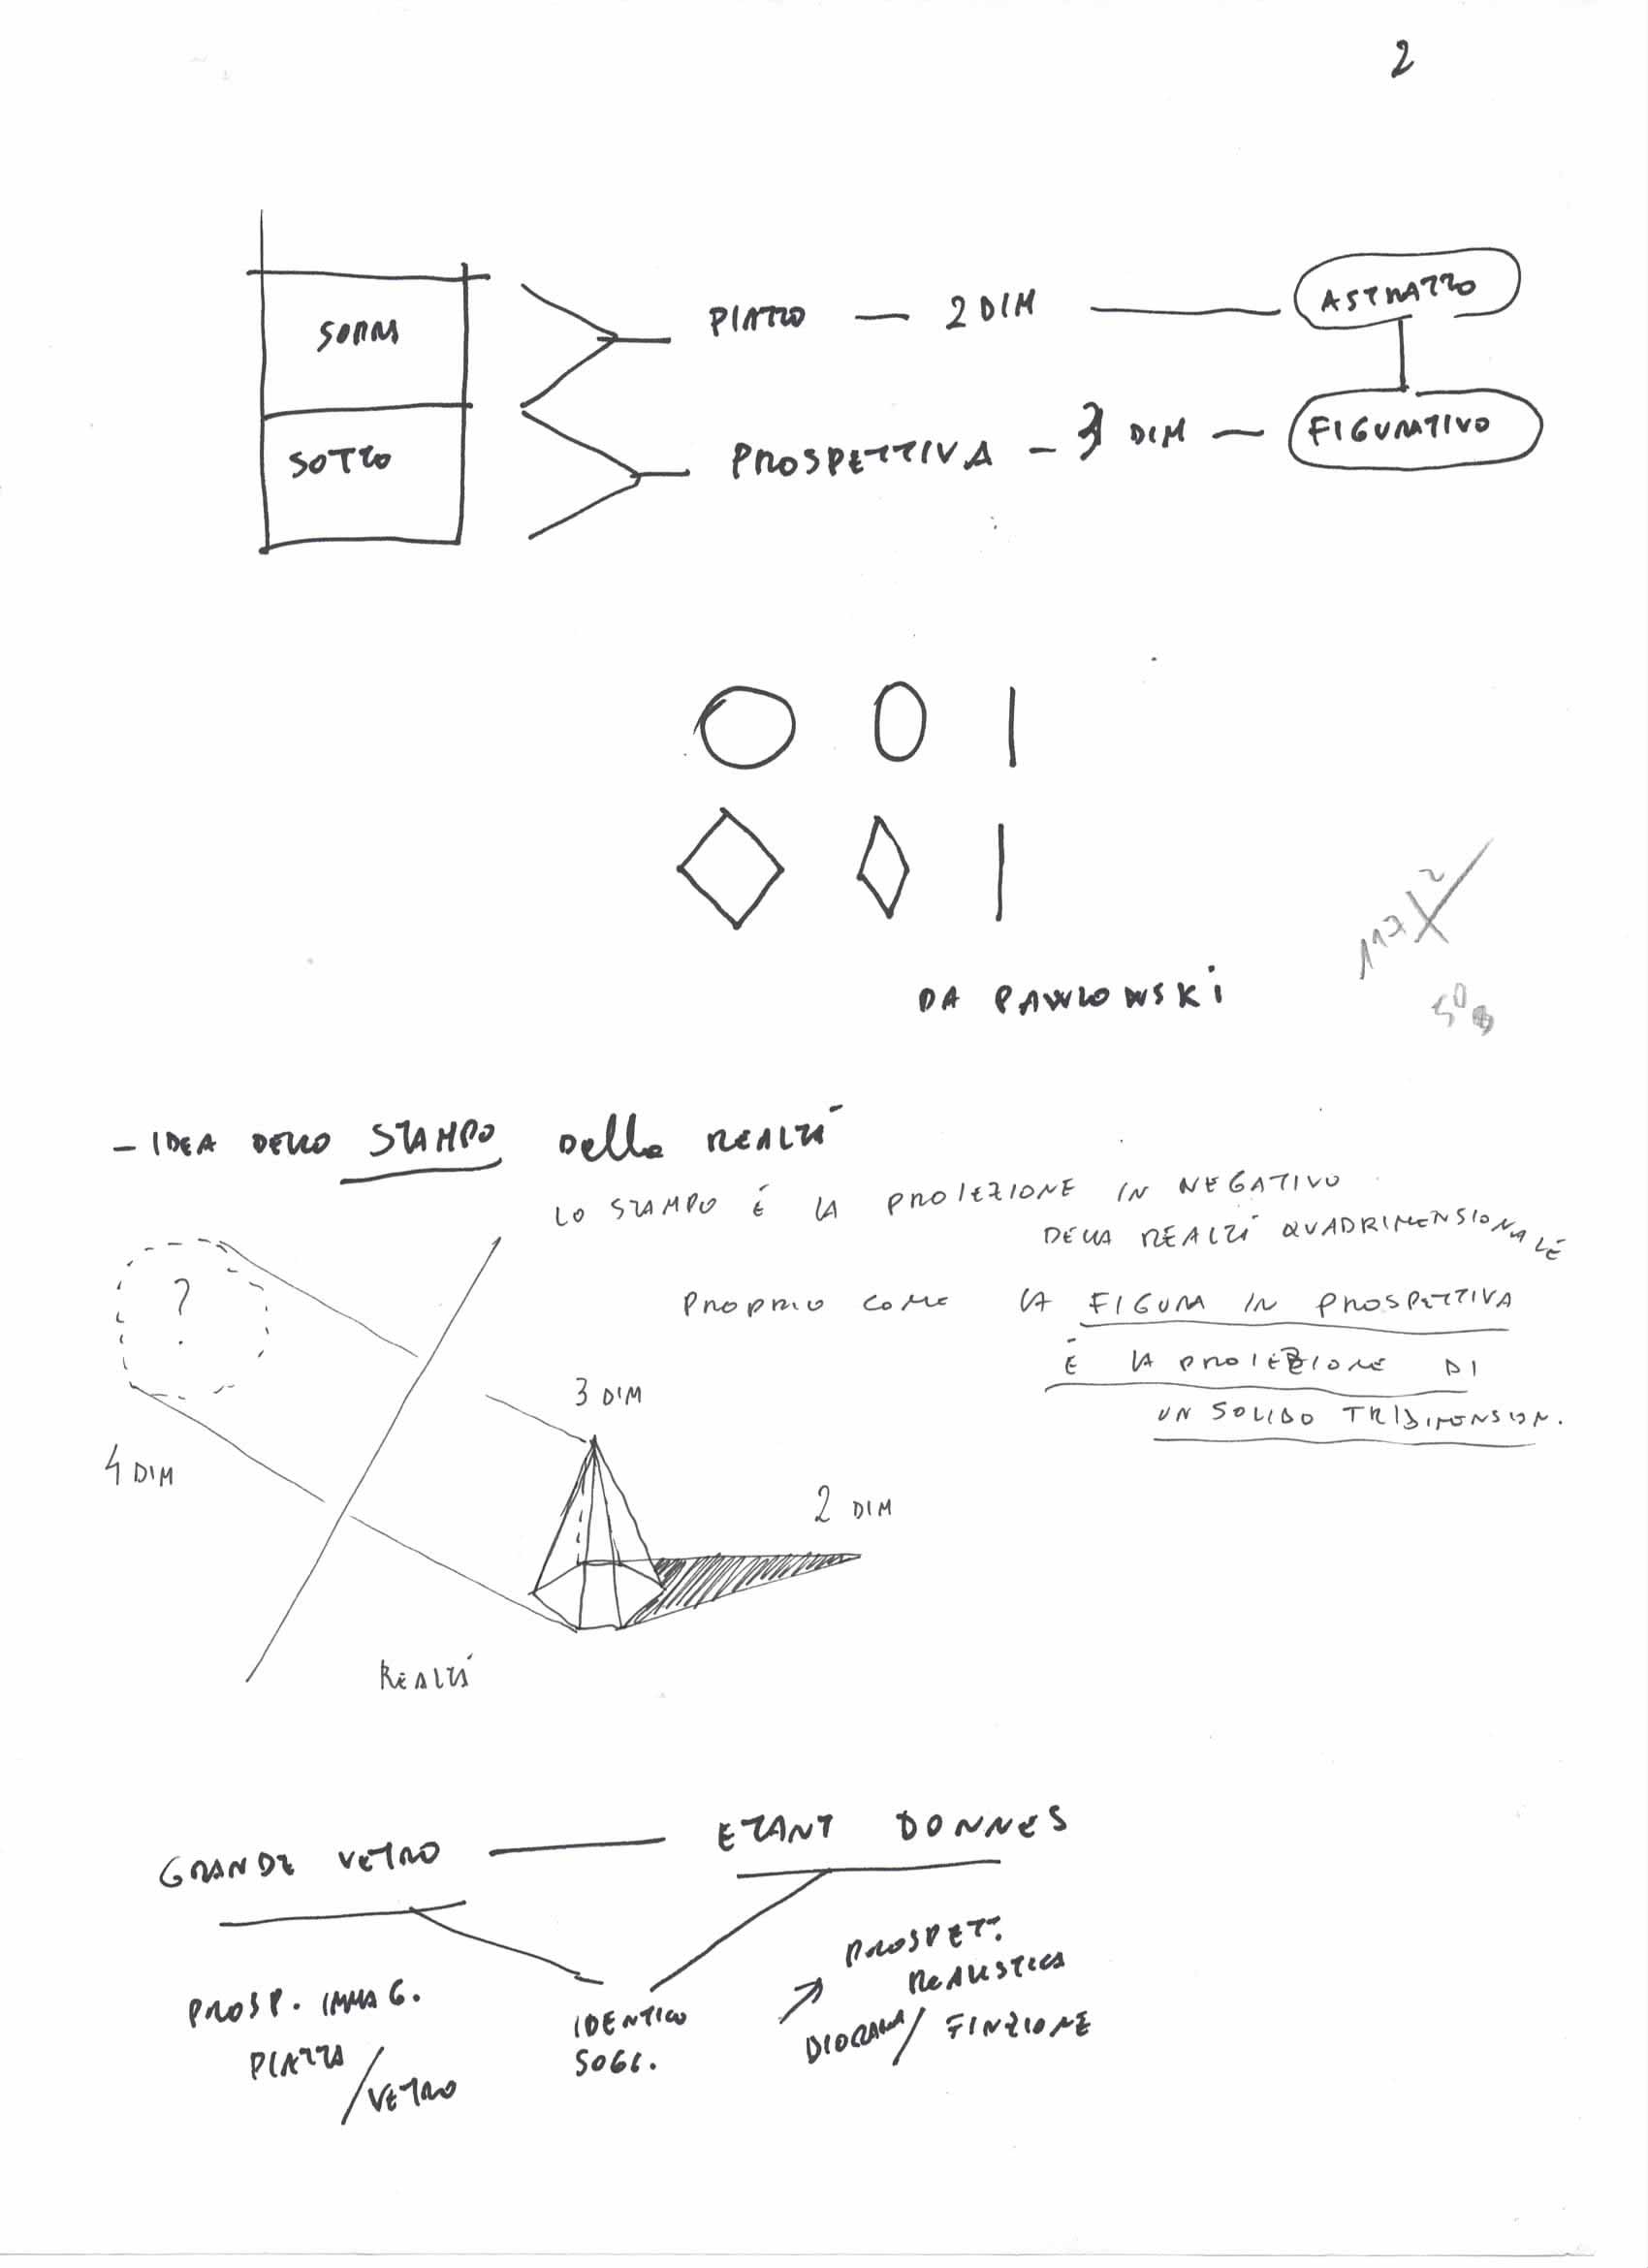 2
SOPRA
PIATTO — 2 DIM — ASTRATTO
SOTTO
PROSPETTIVA - 3 DIM — FIGURATIVO
DA PAWLOWSKI
- IDEA DELLO STAMPO Della REALTÀ
LO STAMPO É LA PROIEZIONE IN NEGATIVO
DELLA REALTÀ QUADRIMENSIONALE
PROPRIO COME LA FIGURA IN PROSPETTIVA
É LA PROIEZIONE DI
UN SOLIDO TRIDIMENSION.
?
3 DIM
4 DIM
2 DIM
REALTÀ
GRANDE VETRO — ETANT DONNES
PROSP. IMMAG.
PIATTA
/VETRO
IDENTICO
SOGG.
PROSPET.
REALISTICA
DIORAMA/ FINZIONE